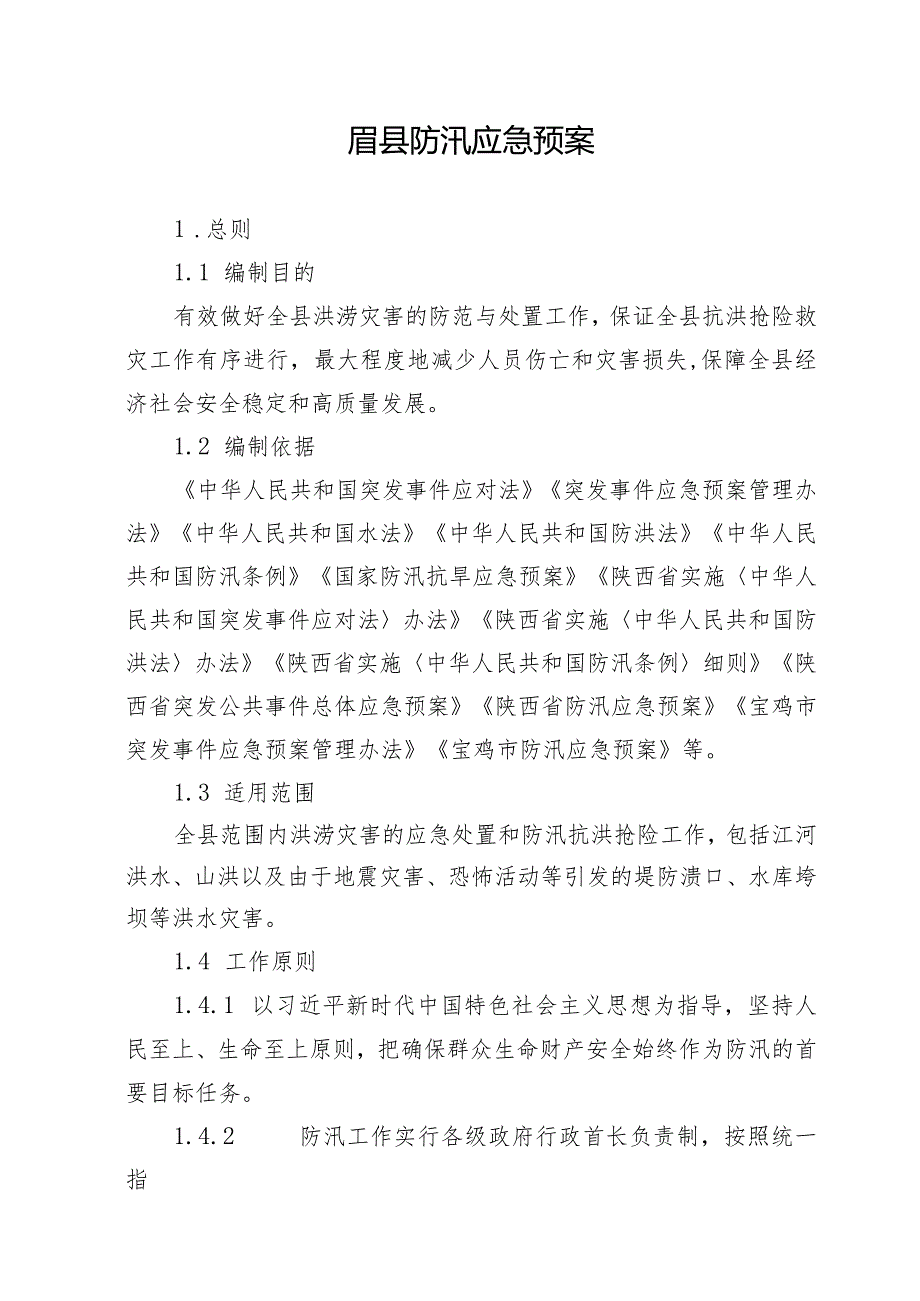 眉县防汛应急预案
1 .总则
1.1 编制目的
有效做好全县洪涝灾害的防范与处置工作，保证全县抗洪抢险救
灾工作有序进行，最大程度地减少人员伤亡和灾害损失,保障全县经
济社会安全稳定和高质量发展。
1.2 编制依据
《中华人民共和国突发事件应对法》《突发事件应急预案管理办
法》《中华人民共和国水法》《中华人民共和国防洪法》《中华人民
共和国防汛条例》《国家防汛抗旱应急预案》《陕西省实施〈中华人
民共和国突发事件应对法〉办法》《陕西省实施〈中华人民共和国防
洪法〉办法》《陕西省实施〈中华人民共和国防汛条例〉细则》《陕
西省突发公共事件总体应急预案》《陕西省防汛应急预案》《宝鸡市
突发事件应急预案管理办法》《宝鸡市防汛应急预案》等。
1.3 适用范围
全县范围内洪涝灾害的应急处置和防汛抗洪抢险工作，包括江河
洪水、山洪以及由于地震灾害、恐怖活动等引发的堤防溃口、水库垮
坝等洪水灾害。
1.4 工作原则
1.4.1 以习近平新时代中国特色社会主义思想为指导，坚持人
民至上、生命至上原则，把确保群众生命财产安全始终作为防汛的首
要目标任务。
1.4.2 防汛工作实行各级政府行政首长负责制，按照统一
指